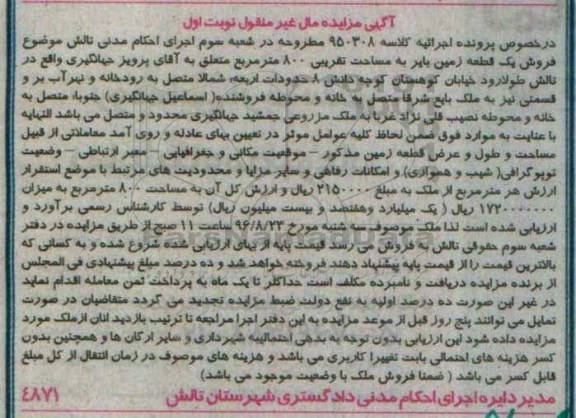 آگهی مزایده مال غیر منقول نوبت اول
درخصوص پرونده اجرائیه کلاسه ۹۵۰۳۰۸ مطروحه در شعبه سوم اجرای احکام مدنی تالش موضوع
فروش یک قطعه زمین بایر به مساحت تقریبی ۸۰۰ مترمربع متعلق به آقای پرویز جهانگیری واقع در
تالش طولارود خیابان کوهستان کوچه دانش ۸ حدودات اربعه: شمالا متصل به رودخانه و نیرآب بر و
قسمتی نیز به ملک بایع شرقا متصل به خانه و محوطه فروشنده( اسماعیل جهانگیری) جنوبا: متصل به
خانه و محوطه نصیب قلی نژاد غربا به ملک مزروعی جمشید جهانگیری محدود و متصل می باشد النهایه
با عنایت به موارد فوق ضمن لحاظ کلیه عوامل موثر در تعیین بهای عادله و روی آمد معاملاتی از قبیل
مساحت و طول و عرض قطعه زمین مذکور – موقعیت مکانی و جغرافیایی – معبر ارتباطی – وضعیت
توپوگرافی( شیب و همواری) و امکانات رفاهی و سایر مزایا و محدودیت های مرتبط با موضع استقرار
ارزش هر مترمربع از ملک به مبلغ ۲۱۵۰۰۰۰ ریال و ارزش کل آن به مساحت ۸۰۰ مترمربع به میزان
۱۷۲۰۰۰۰۰۰۰ ریال ( یک میلیارد وهفتصد و بیست میلیون ریال) توسط کارشناس رسمی برآورد و
ارزیابی شده است لذا ملک موصوف سه شنبه مورخ ۹۶/۸/۲۳ ساعت ۱۱ صبح از طریق مزایده در دفتر
شعبه سوم حقوقی تالش به فروش می رسد قیمت پایه از بهای ارزیابی شده شروع شده و به کسانی که
بالاترین قیمت را از قیمت پایه پیشنهاد دهند فروخته خواهد شد و ده درصد مبلغ پیشنهادی فی المجلس
از برنده مزایده دریافت و نامبرده مکلف است حداکثر تا یک ماه به پرداخت ثمن معامله اقدام نماید
در غیر این صورت ده درصد اولیه به نفع دولت ضبط مزایده تجدید می گردد متقاضیان در صورت
تمایل می توانند پنج روز قبل از موعد مزایده به این دفتر اجرا مراجعه تا ترتیب بازدید انان ازملک مورد
مزایده داده شود این ارزیابی بدون توجه به بدهی احتمالیبه شهرداری و سایر ارکان ها و همچنین بدون
کسر هزینه های احتمالی بابت تغییرا کاربری می باشد و هزینه های موصوف در زمان انتقال از کل مبلغ
قابل کسر می باشد ( ضمنا فروش ملک با وضعیت موجود می باشد)
مدیر دایره اجرای احکام مدنی دادگستری شهرستان تالش ۴۸۷۱